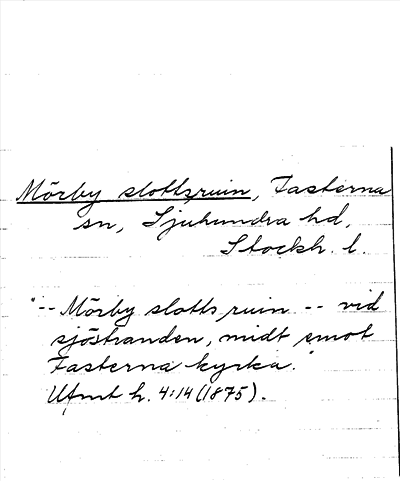 Mörby slottsruin, Fasterna
sn, Sjuhundra hd,
Stockh. l.
"-- Mörby slotts ruin -- vid
sjöstranden, midt emot
Fasterna kyrka."
Utmt h. 4:14 (1875).